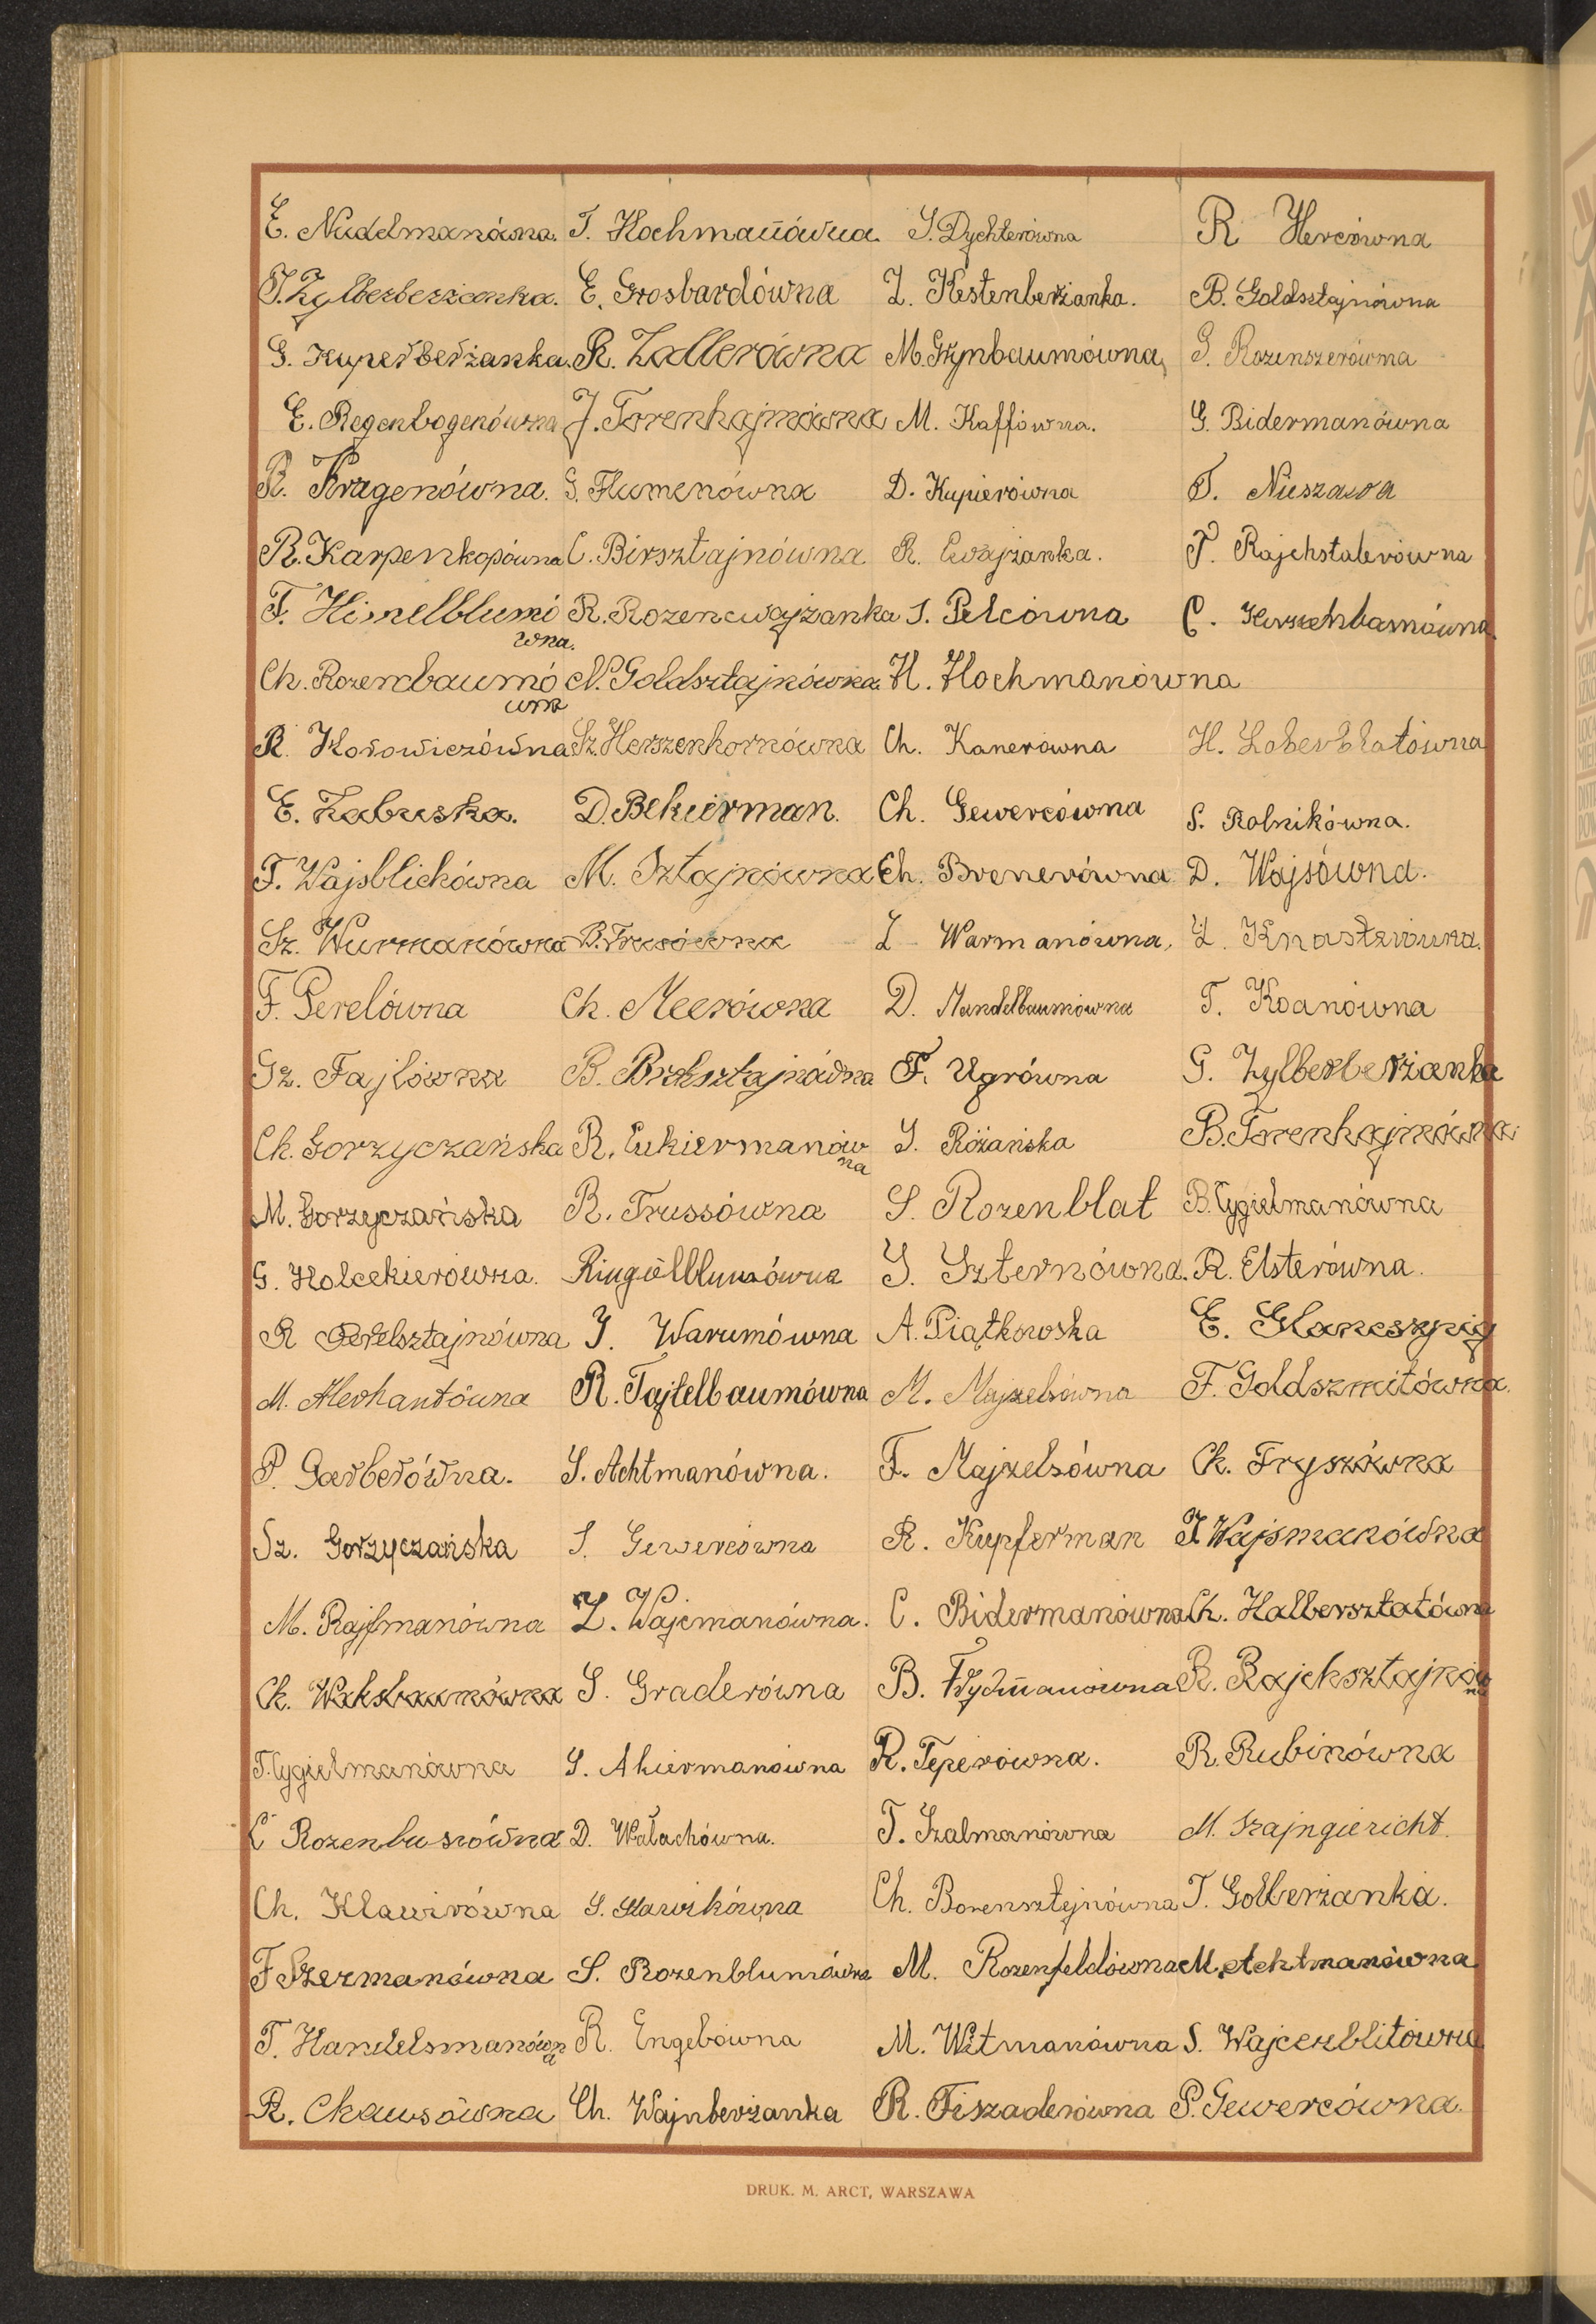 E. Nudelmanówna. T. Hochmanówna. S. Dychterówna R Hercówna
T. Zylberberżanka. E. Grosbardówna Z. Kestenberżanka. B. Goldsztajnówna
G. Kuperberżanka. R. Zallerówna M. Grynbaumówna, G. Rozenszerówna
E. Regenbogenówna J. Torenhajmówna M. Kaffówna. G. Bidermanówna
R. Kragenówna. G. Flumenówna D. Kupierówna T. Niuszawa
R. Karpenkopówna C. Birsztajnówna R. Cwajżanka. P. Rajchstalerówna
F. Himelblumó R. Rozencwajżanka S. Pelcówna C.
wna.
Ch. Rozenbaumó N. Goldsztajnówna. H. Hochmanówna
wna
R. Horowiczówna Sz. Herszenhornówna Ch. Kanerówna H. Loberblatówna
E. Zabuska. D. Bekierman. Ch. Gewercówna S. Rolnikówna.
T. Wajsblichówna M. Sztajnówna Ch. Brenerówna D. Wajsówna.
Sz. Wurmanówna B. Frusówna Z Warmanówna, L. Knastrówna.
F. Perelówna Ch. Meerówna D. Mandelbaumówna T. Koanówna
Sz. Fajlówna B. F. Ugrówna G. Zylberberżanka
Ch. Gorzyczańska R. Cukiermanów S. Różańska B. Torenhajmówna.
na
M. Gorzyczańska R. Trussówna S. Rozenblat B. Cygielmanówna
G. Holcekierówna. Ringielblumówna S. Szternówna. R. Elsterówna.
R Perelsztajnówna S. Warumówna A. Piątkowska E. Glancszpig
M. Alerhantówna R. Tajtelbaumówna M. Majzelsówna F. Goldszmitówna.
P. Garberówna. S. Achtmanówna. F. Majzelsówna Ch. Fryszówna
Sz. Gorzyczańska S. Gewercówna R. Kupferman I. Wajsmanówna
M. Rajfmanówna Z. Wajcmanówna. C. Bidermanówna Ch. Halbersztatówna
Ch. Wakslaumówna S. Graderówna B. Frydmanówna R. Rajchsztajnów
na
T. Cygielmanówna S. Akiermanówna R. Teperówna. R. Rubinówna
C Rozenbuszówna D. Wałachówna. T. Szalmanówna M. Szajngiericht.
Ch. Klawirówna S. Sławikówna Ch. Borensztejnówna T. Golberżanka.
F Szermanówna S. Rozenblumówna M. Rozenfeldówna M. Achtmanówna
T. Handelsmanówn R. Engelówna M. Witmanówna S. Wajcenblitówna
a
R. Chawsówna Ch. Wajnberżanka R. Fiszaderówna P. Gewercówna.
DRUK. M. ARCT, WARSZAWA